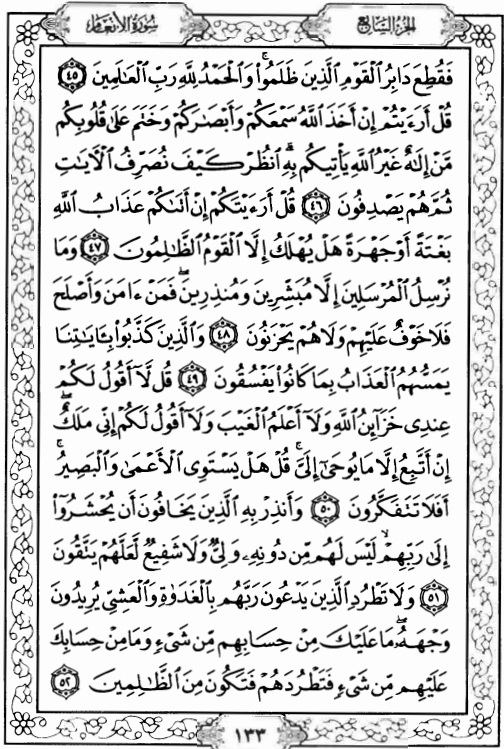 سورة الأنعام الجزء السابع
فَقُطِعَ دَابِرُ ٱلْقَوْمِ ٱلَّذِينَ ظَلَمُوا۟ ۚ وَٱلْحَمْدُ لِلَّهِ رَبِّ ٱلْعَـٰلَمِينَ ٤٥
قُلْ أَرَءَيْتُمْ إِنْ أَخَذَ ٱللَّهُ سَمْعَكُمْ وَأَبْصَـٰرَكُمْ وَخَتَمَ عَلَىٰ قُلُوبِكُم
مَّنْ إِلَـٰهٌ غَيْرُ ٱللَّهِ يَأْتِيكُم بِهِ ۗ ٱنظُرْ كَيْفَ نُصَرِّفُ ٱلْـَٔايَـٰتِ
ثُمَّ هُمْ يَصْدِفُونَ ٤٦ قُلْ أَرَءَيْتَكُمْ إِنْ أَتَىٰكُمْ عَذَابُ ٱللَّهِ
بَغْتَةً أَوْ جَهْرَةً هَلْ يُهْلَكُ إِلَّا ٱلْقَوْمُ ٱلظَّـٰلِمُونَ ٤٧ وَمَا
نُرْسِلُ ٱلْمُرْسَلِينَ إِلَّا مُبَشِّرِينَ وَمُنذِرِينَ ۖ فَمَنْ ءَامَنَ وَأَصْلَحَ
فَلَا خَوْفٌ عَلَيْهِمْ وَلَا هُمْ يَحْزَنُونَ ٤٨ وَٱلَّذِينَ كَذَّبُوا۟ بِـَٔايَـٰتِنَا
يَمَسُّهُمُ ٱلْعَذَابُ بِمَا كَانُوا۟ يَفْسُقُونَ ٤٩ قُل لَّآ أَقُولُ لَكُمْ
عِندِى خَزَآئِنُ ٱللَّهِ وَلَآ أَعْلَمُ ٱلْغَيْبَ وَلَآ أَقُولُ لَكُمْ إِنِّى مَلَكٌ ۖ
إِنْ أَتَّبِعُ إِلَّا مَا يُوحَىٰٓ إِلَىَّ ۚ قُلْ هَلْ يَسْتَوِى ٱلْأَعْمَىٰ وَٱلْبَصِيرُ ۚ
أَفَلَا تَتَفَكَّرُونَ ٥٠ وَأَنذِرْ بِهِ ٱلَّذِينَ يَخَافُونَ أَن يُحْشَرُوٓا۟
إِلَىٰ رَبِّهِمْ ۙ لَيْسَ لَهُم مِّن دُونِهِۦ وَلِىٌّ وَلَا شَفِيعٌ لَّعَلَّهُمْ يَتَّقُونَ
٥١ وَلَا تَطْرُدِ ٱلَّذِينَ يَدْعُونَ رَبَّهُم بِٱلْغَدَوٰةِ وَٱلْعَشِىِّ يُرِيدُونَ
وَجْهَهُۥ ۖ مَا عَلَيْكَ مِنْ حِسَابِهِم مِّن شَىْءٍ وَمَا مِنْ حِسَابِكَ
عَلَيْهِم مِّن شَىْءٍ فَتَطْرُدَهُمْ فَتَكُونَ مِنَ ٱلظَّـٰلِمِينَ ٥٢
١٣٣